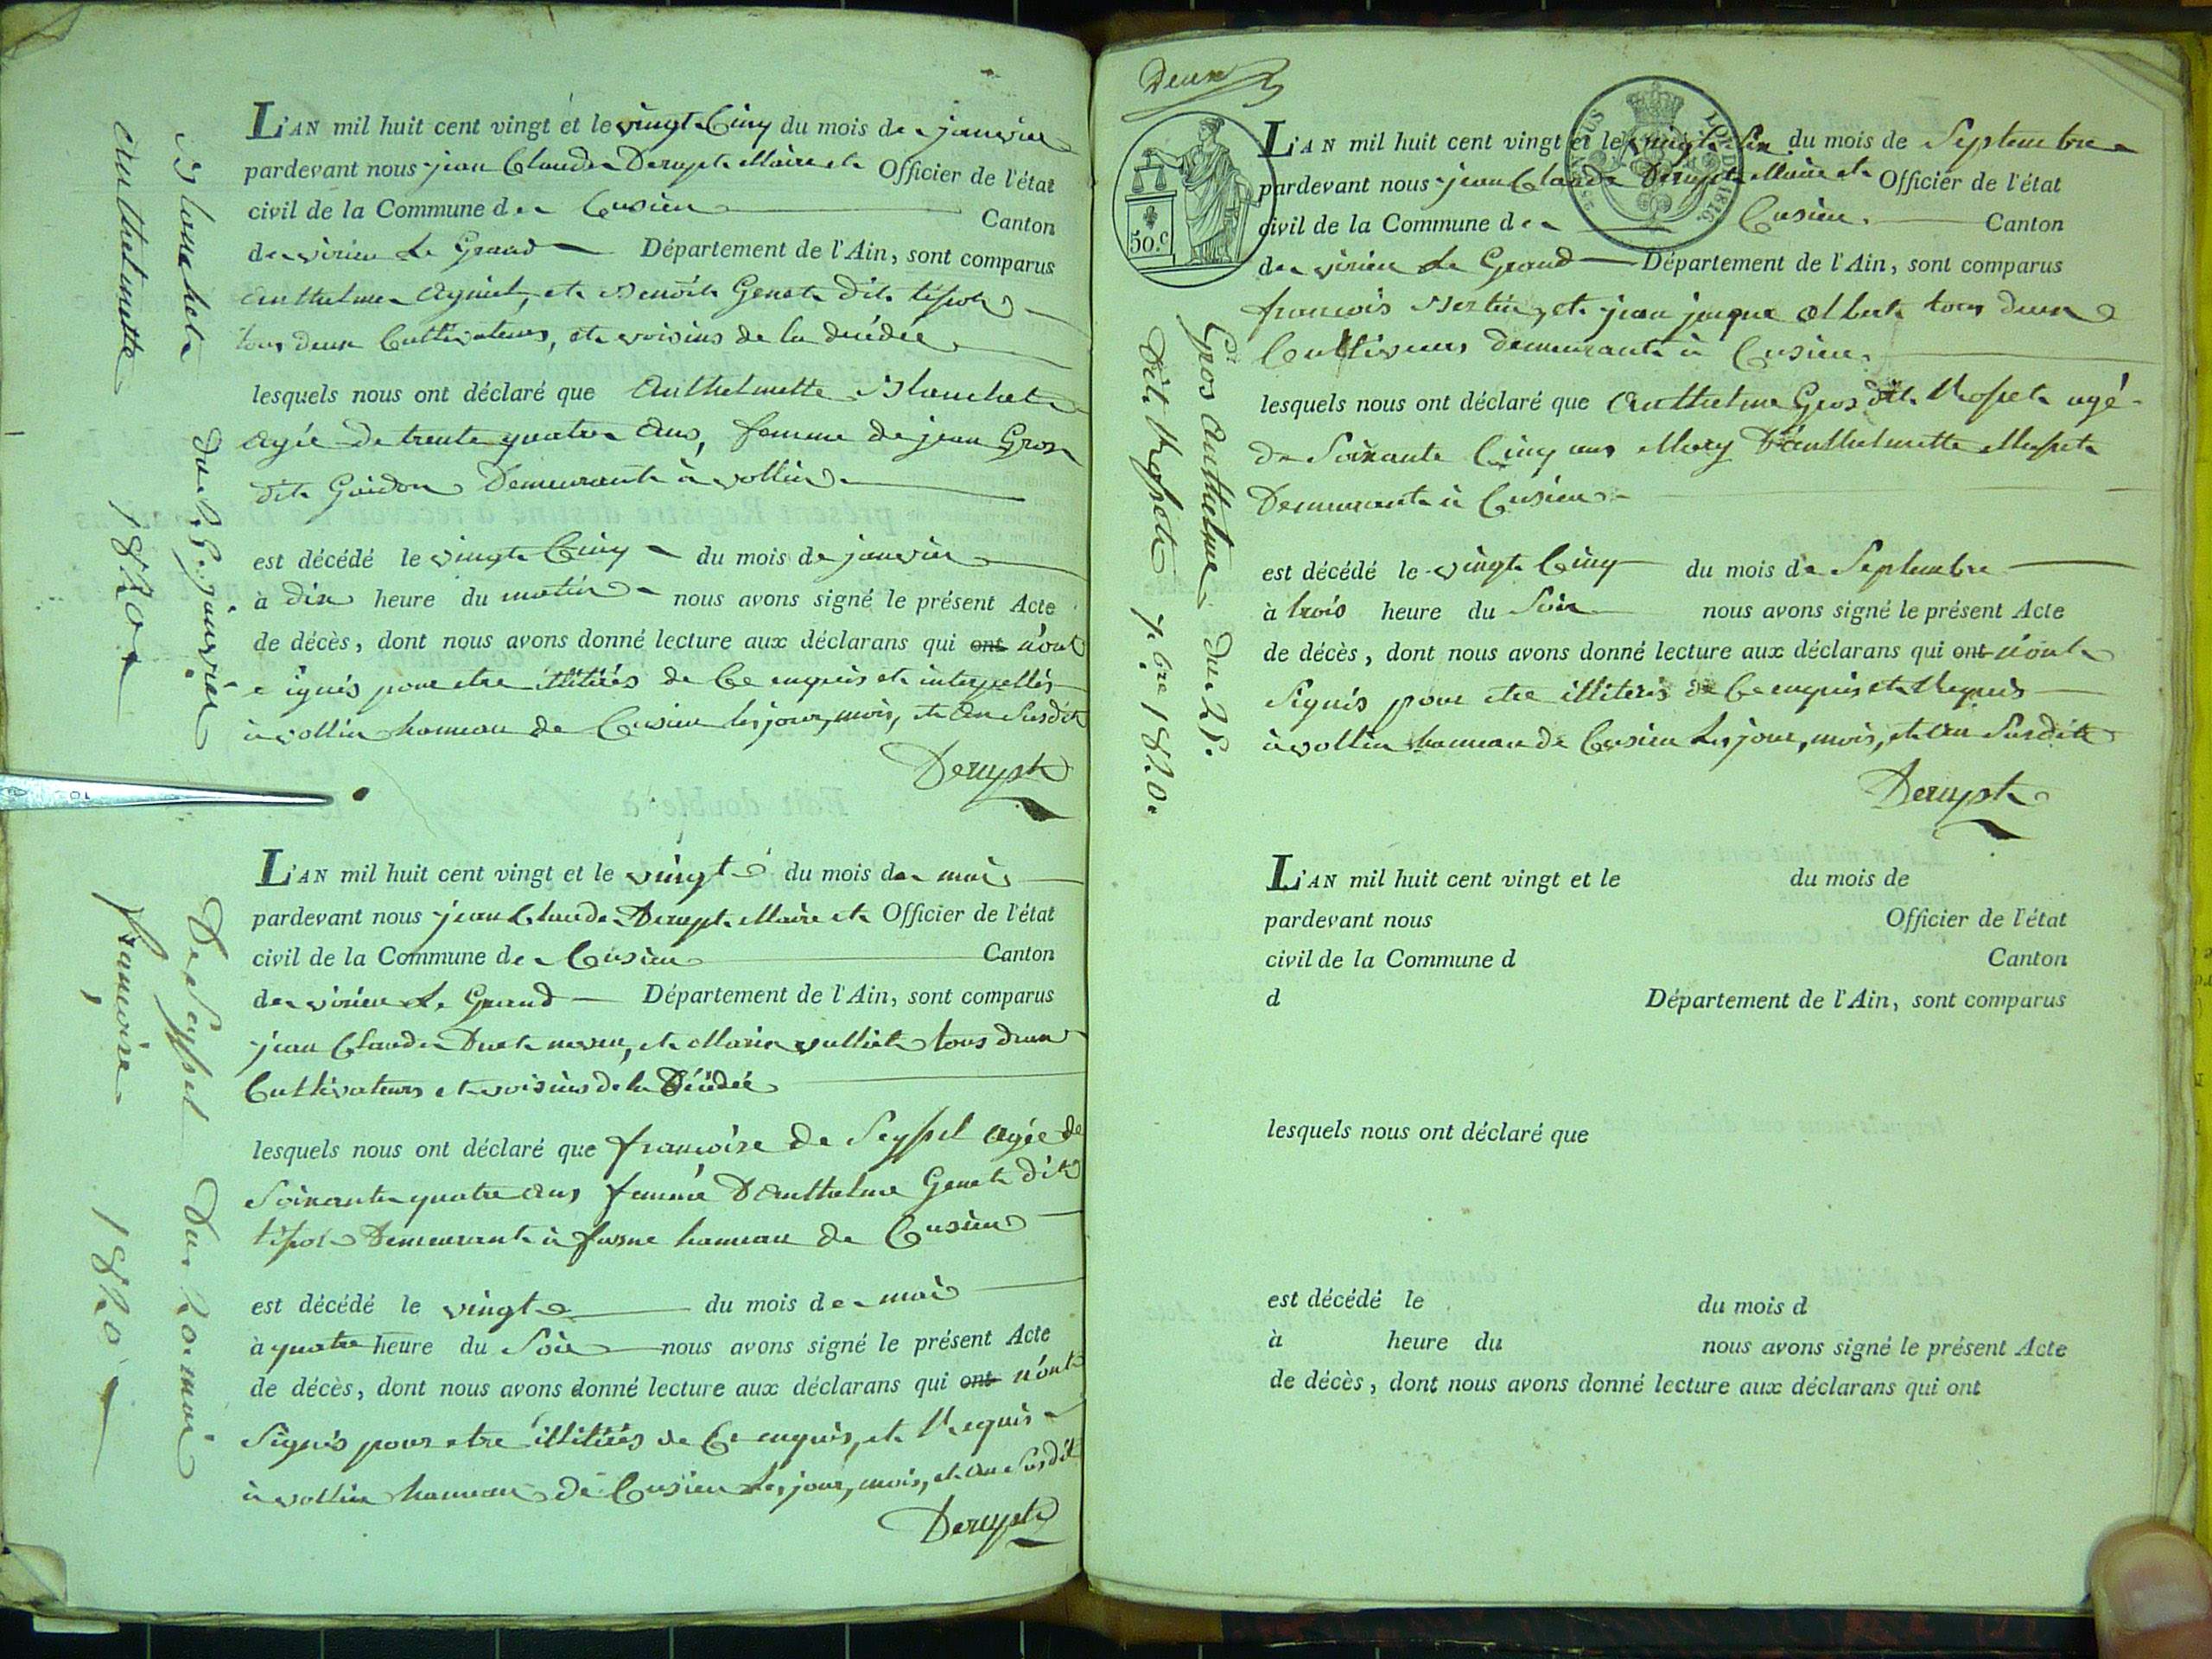 Blanchet
anthelmette
du 25 janvier
1820
L'AN mil huit cent vingt et le vingt Cinq du mois de janvier
pardevant nous jean Claude Derupt Maire et Officier de l'état
civil de la Commune de Cusieu Canton
de virieu Le Grand Département de l'Ain, sont comparus
anthelme et Benoit Genet dit
tous deux Cultivateurs, et voisins de la décédée
lesquels nous ont déclaré que anthelmette Blanchet
agée de trente quatre ans, femme de jean Gros
dit Guidon Demeurant à vollin
est décédé le vingt Cinq du mois de janvier
à dix heure du matin nous avons signé le présent Acte
de décès, dont nous avons donné lecture aux déclarans qui ont n'ont
signés pour etre illitérés de Ce enquis et interpellés
à vollin hameau de Cusieu les jour, mois, et an susdit
Derupt
De Seyssel
francoise
du 20 mai
1820
L'AN mil huit cent vingt et le vingt du mois de mai
pardevant nous jean Claude Derupt Maire et Officier de l'état
civil de la Commune de Cusieu Canton
de virieu Le Grand Département de l'Ain, sont comparus
jean Claude neveu, et tous deux
Cultivateurs et voisins de la Décédée
lesquels nous ont déclaré que francoise de Seyssel agée de
Soixante quatre ans femme D'anthelme Genet dit
Demeurant à hameau de Cusieu
est décédé le vingt du mois de mai
à quatre heure du Soir nous avons signé le présent Acte
de décès, dont nous avons donné lecture aux déclarans qui ont n'ont
Signés pour etre illitérés de Ce enquis, et Requis
à vollin hameau de Cusieu Les jour, mois, et an Susdit
Derupt
Deux
50.C
LOI DE 1816.
Gros anthelme
dit Rosset
du 25
7.bre 1820.
L'AN mil huit cent vingt et le vingt Six du mois de Septembre
pardevant nous jean Claude Derupt Maire et Officier de l'état
civil de la Commune de Cusieu. Canton
de virieu Le Grand Département de l'Ain, sont comparus
francois Bertin, et jean jacque albert tous deux
Cultiveurs demeurant à Cusieu.
lesquels nous ont déclaré que anthelme Gros dit Rosset agé
de Soixante Cinq ans Mary D'anthelmette
Demeurant à Cusieu
est décédé le vingt Cinq du mois de Septembre
à trois heure du Soir nous avons signé le présent Acte
de décès, dont nous avons donné lecture aux déclarans qui ont n'ont
Signés pour etre illiterés de Ce enquis et Requis
à vollin hameau de Cusieu Les jour, mois, et an Susdit
Derupt
L'AN mil huit cent vingt et le du mois de
pardevant nous Officier de l'état
civil de la Commune d Canton
d Département de l'Ain, sont comparus
lesquels nous ont déclaré que
est décédé le du mois d
à heure du nous avons signé le présent Acte
de décès, dont nous avons donné lecture aux déclarans qui ont